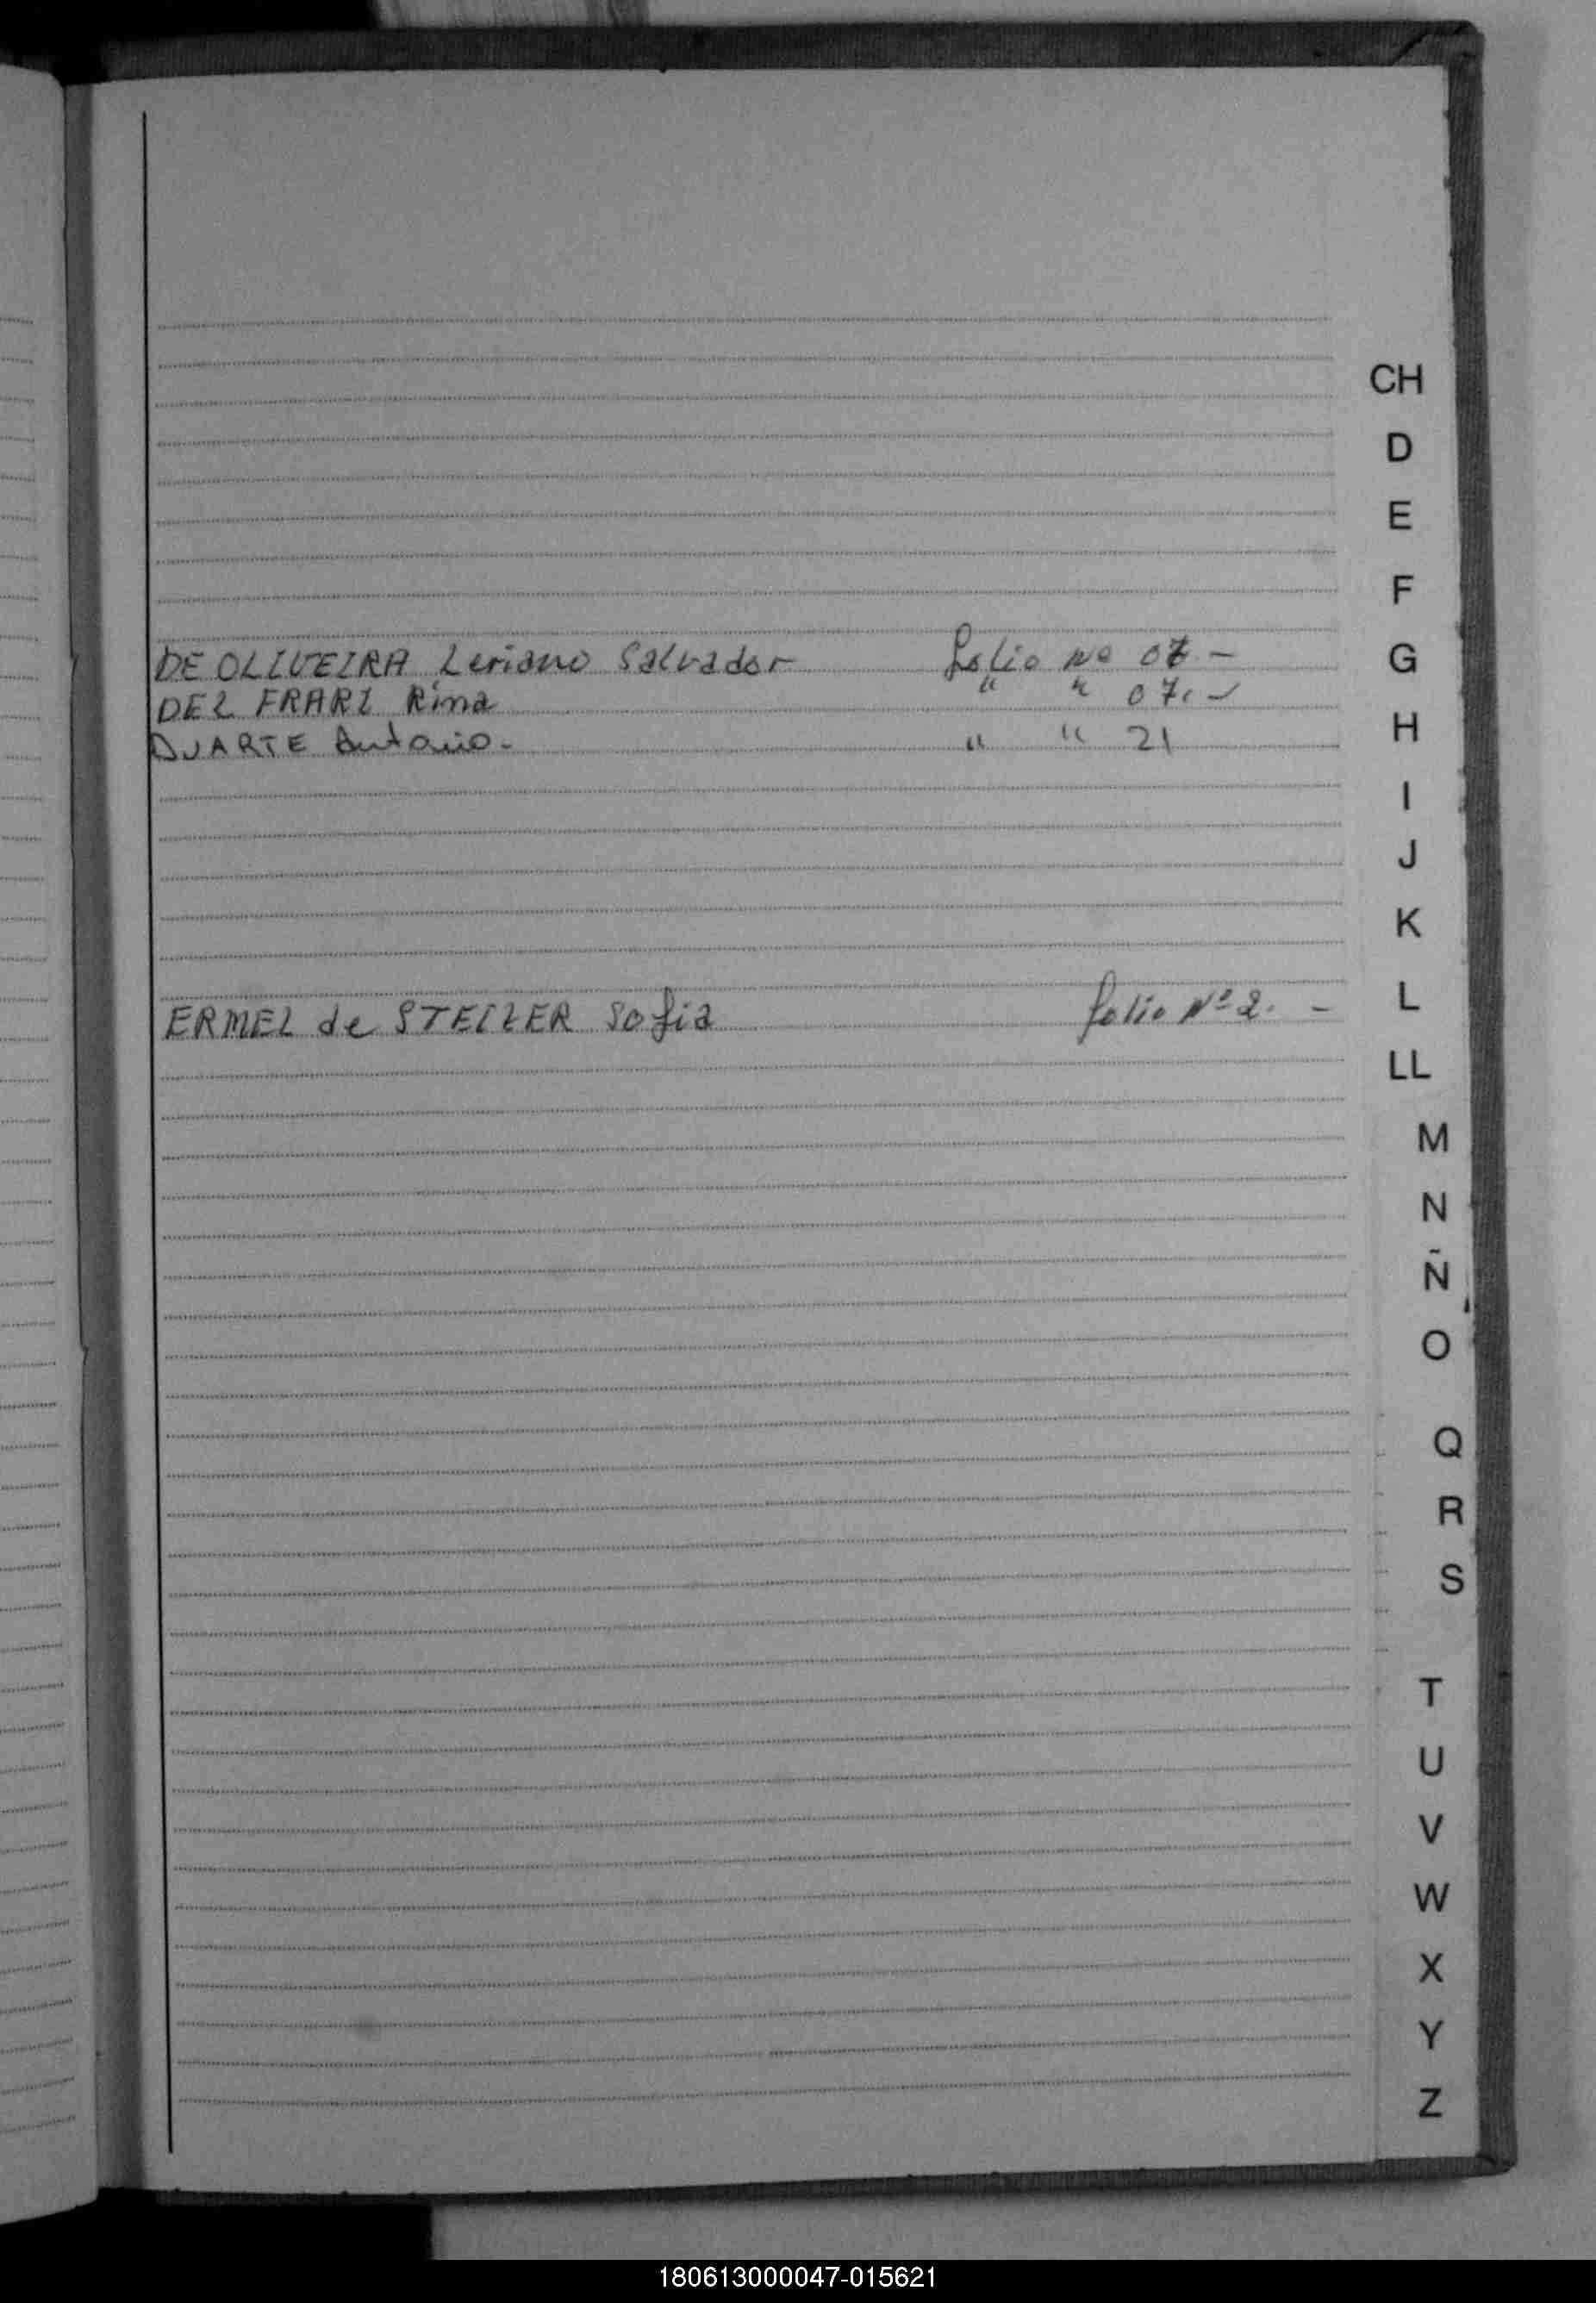 CH
D
E
F
DE OLIVEIRA Leriano Salvador folio Nº 07.- G
DEL FRARI Rina " " 07.-
DUARTE Antonio.- " " 21 H
I
J
K
ERMEL de STEIZER Sofia folio Nº 2. - L
LL
M
N
Ñ
O
Q
R
S
T
U
V
W
X
Y
Z
180613000047-015621